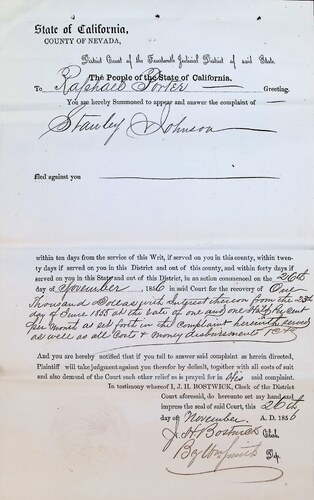 State of California,
COUNTY OF NEVADA,
District Court of the Fourteenth Judicial District of said State.
The People of the State of California.
To Raphael Porter Greeting.
You are hereby Summoned to appear and answer the complaint of
Stanley Johnson
filed against you
within ten days from the service of this Writ, if served on you in this county, within twen-
ty days if served on you in this District and out of this county, and within forty days if
served on you in this State and out of this District, in an action commenced on the 26th
day of November, 1856 in said Court for the recovery of One
Thousand Dollars with Interest thereon from the 23d
day of June 1855 at the rate of one and one Half per cent
per Month as set forth in the Complaint herewith served
as well as all Costs & money disbursements
And you are hereby notified that if you fail to answer said complaint as herein directed,
Plaintiff will take judgment against you therefor by default, together with all costs of suit
and also demand of the Court such other relief as is prayed for in his said complaint.
In testimony whereof I, J. H. BOSTWICK, Clerk of the District
Court aforesaid, do hereunto set my hand and
impress the seal of said Court, this 26th
day of November A. D. 1856
J. H. Bostwick Clerk.
By Wm Smith Dep.